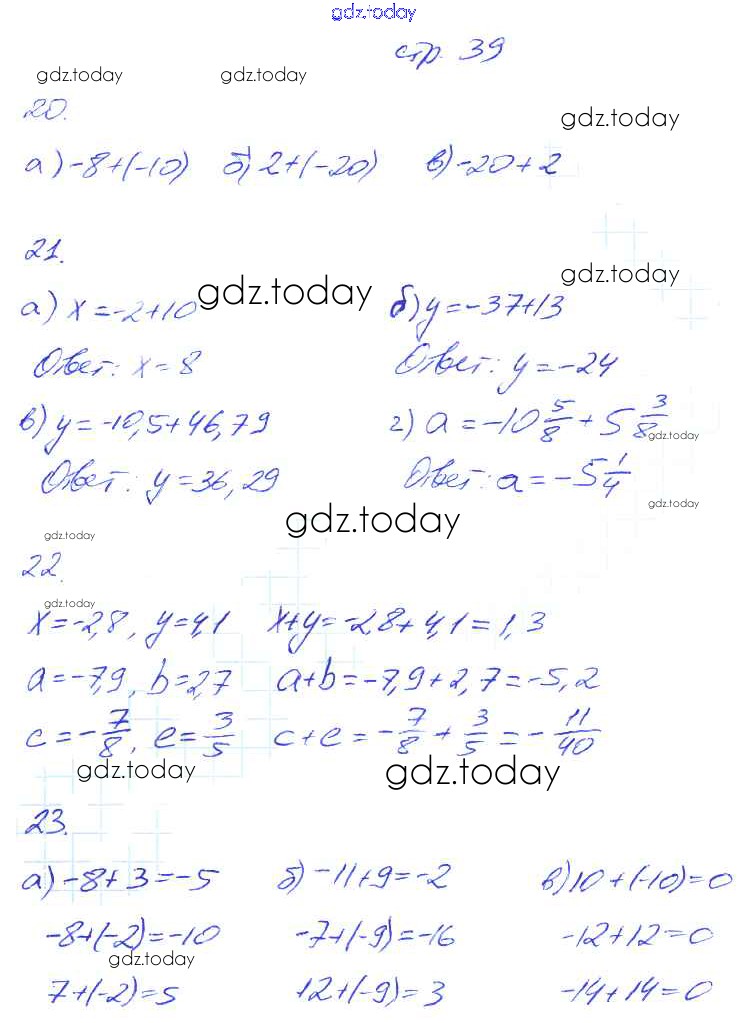 gdz.today
стр. 39
gdz.today gdz.today
20.
gdz.today
а) -8+(-10) б) 2+(-20) в) -20+2
21.
gdz.today
а) x=-2+10 gdz.today б) y=-37+13
Ответ: x=8 Ответ: y=-24
в) y=-10,5+46,79 г) a=-10 5/8 + 5 3/8
gdz.today
Ответ: y=36,29 Ответ: a=-5 1/4
gdz.today
gdz.today
gdz.today
22.
gdz.today
x=-2,8, y=4,1 x+y=-2,8+4,1=1,3
a=-7,9, b=2,7 a+b=-7,9+2,7=-5,2
c=-7/8, e=3/5 c+e=-7/8+3/5=-11/40
gdz.today gdz.today
23.
а) -8+3=-5 б) -11+9=-2 в) 10+(-10)=0
-8+(-2)=-10 -7+(-9)=-16 -12+12=0
gdz.today
7+(-2)=5 12+(-9)=3 -14+14=0